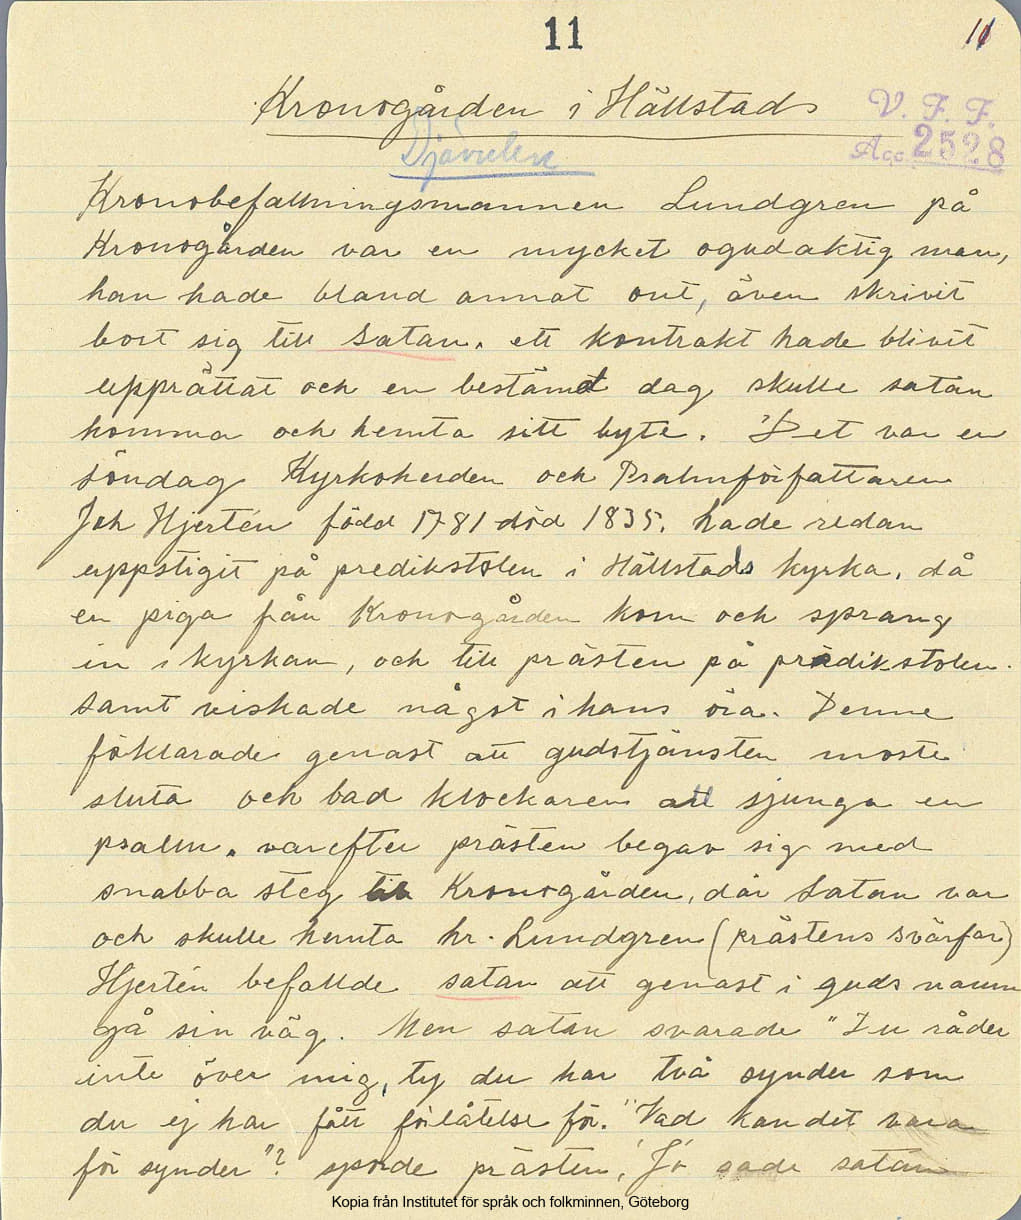 11
11
Kronogården i Hällstads
V. F. F.
Acc. 2528
Djävulen
Kronobefallningsmannen Lundgren på
Kronogården var en mycket ogudaktig man,
han hade bland annat ont, även skrivit
bort sig till Satan. ett kontrakt hade blivit
upprättat och en bestämd dag skulle satan
komma och hemta sitt byte. Det var en
söndag Kyrkoherden och Psalmförfattaren
Joh Hjertén född 1781 död 1835. hade redan
uppstigit på predikstolen i Hällstads kyrka, då
en piga från Kronogården kom och sprang
in i kyrkan, och till prästen på predikstolen.
samt viskade något i hans öra. Denne
föklarade genast att gudstjänsten moste
sluta och bad klockaren att sjunga en
psalm. varefter prästen begav sig med
snabba steg till Kronogården, där Satan var
och skulle hemta hr. Lundgren (prästens svärfar)
Hjertén befallde satan att genast i guds namn
gå sin väg. Men satan svarade "Du råder
inte över mig, ty du har två synder som
du ej har fått förlåtelse för." "Vad kan det vara
för synder"? sporde prästen, "Jo sade satan
Kopia från Institutet för språk och folkminnen, Göteborg